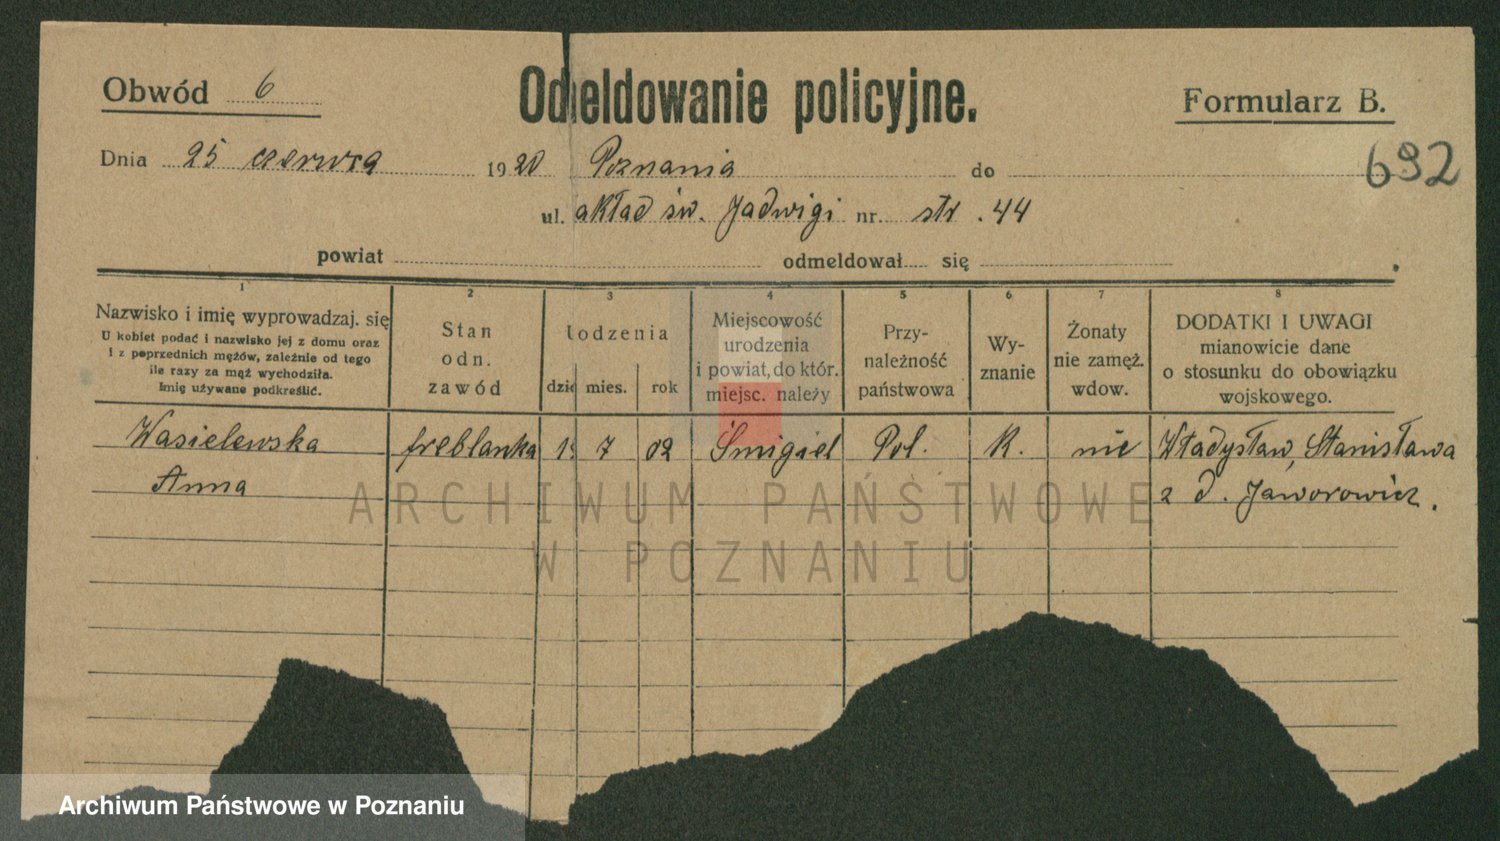 Obwód 6
Odmeldowanie policyjne.
Formularz B.
692
Dnia 25 czerwca 1920 Poznania do
ul. akład św. Jadwigi nr. str. 44
powiat odmeldował się
1 2 3 4 5 6 7 8
Nazwisko i imię wyprowadzaj. się
U kobiet podać i nazwisko jej z domu oraz
i z poprzednich mężów, zależnie od tego
ile razy za mąż wychodziła.
Imię używane podkreślić.
Stan
odn.
zawód
łodzenia
dzie mies. rok
Miejscowość
urodzenia
i powiat, do któr.
miejsc. należy
Przy-
należność
państwowa
Wy-
znanie
Żonaty
nie zamęż.
wdow.
DODATKI I UWAGI
mianowicie dane
o stosunku do obowiązku
wojskowego.
Wasielewska freblanka 7 02 Śmigiel Pol. K. nie Władysław, Stanisława
Anna z d. Jaworowicz.
ARCHIWUM PAŃSTWOWE
W POZNANIU
Archiwum Państwowe w Poznaniu